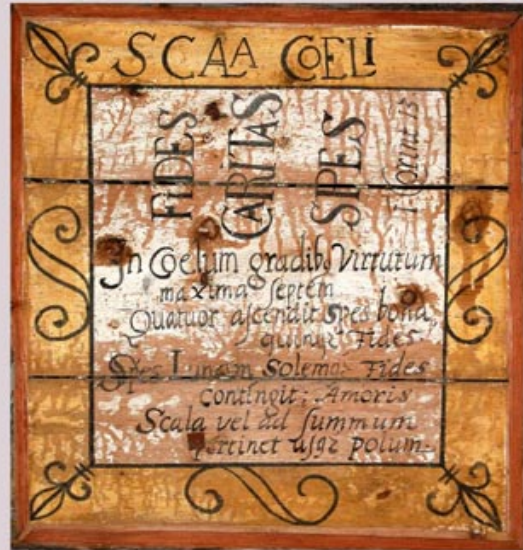 SCALA COELI
FIDES
CARITAS
SPES
I Corint 13
In Coelum gradibq Virtutum
maxima septem
Quatuor ascendit Spes bona,
quinq2 Fides
Spes Lunam Solemq2 Fides
contingit; Amoris
Scala vel ad summum
pertinet usq2 Polum.